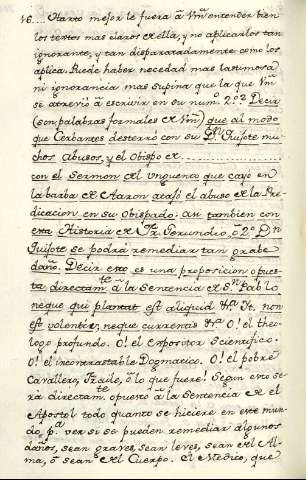 16.... Harto mejor le fuera â Vm. entender bien
los textos mas claros de ella, y no aplicarlos tan
ignorante, y tan disparatadamente como los
aplica. Puede haber necedad mas lastimosa
ni ignorancia mas supina que la que Vm.
se atreviò â escrivir en su num.º 2.º? Decir
(son palabras formales de Vm.) que al modo
que Cerbantes desterrò con su Dn. Quijote mu-
chos abusos, y el Obispo de
con el Sermon del Unguento que cayò en
la barba de Aaron atajò el abuso de la Pre-
dicacion en su Obispado: asi tambien con
esta Historia de Fr. Gerundio, ò 2.º Dn.
Quijote se podrà remediar tan grabe
daño. Decir esto es una proposicion opues-
ta directam.te â la Sentencia de Sn. Pablo
neque qui plantat est aliquid &a. It. non
est volentis, neque currentis &a. O! el theo-
logo profundo. O! el Expositor Scientifico.
O! el incontrastable Dogmatico. O! el pobre
Cavallero, Fraile, ô lo que fuere! Segun esto se-
ra directam.te opuesto â la Sentencia de el
Apostol todo quanto se hiciere en este mun-
do, p.a ver si se pueden remediar algunos
daños, sean graves, sean leves, sean del Al-
ma, ô sean del Cuerpo. El Medico, que